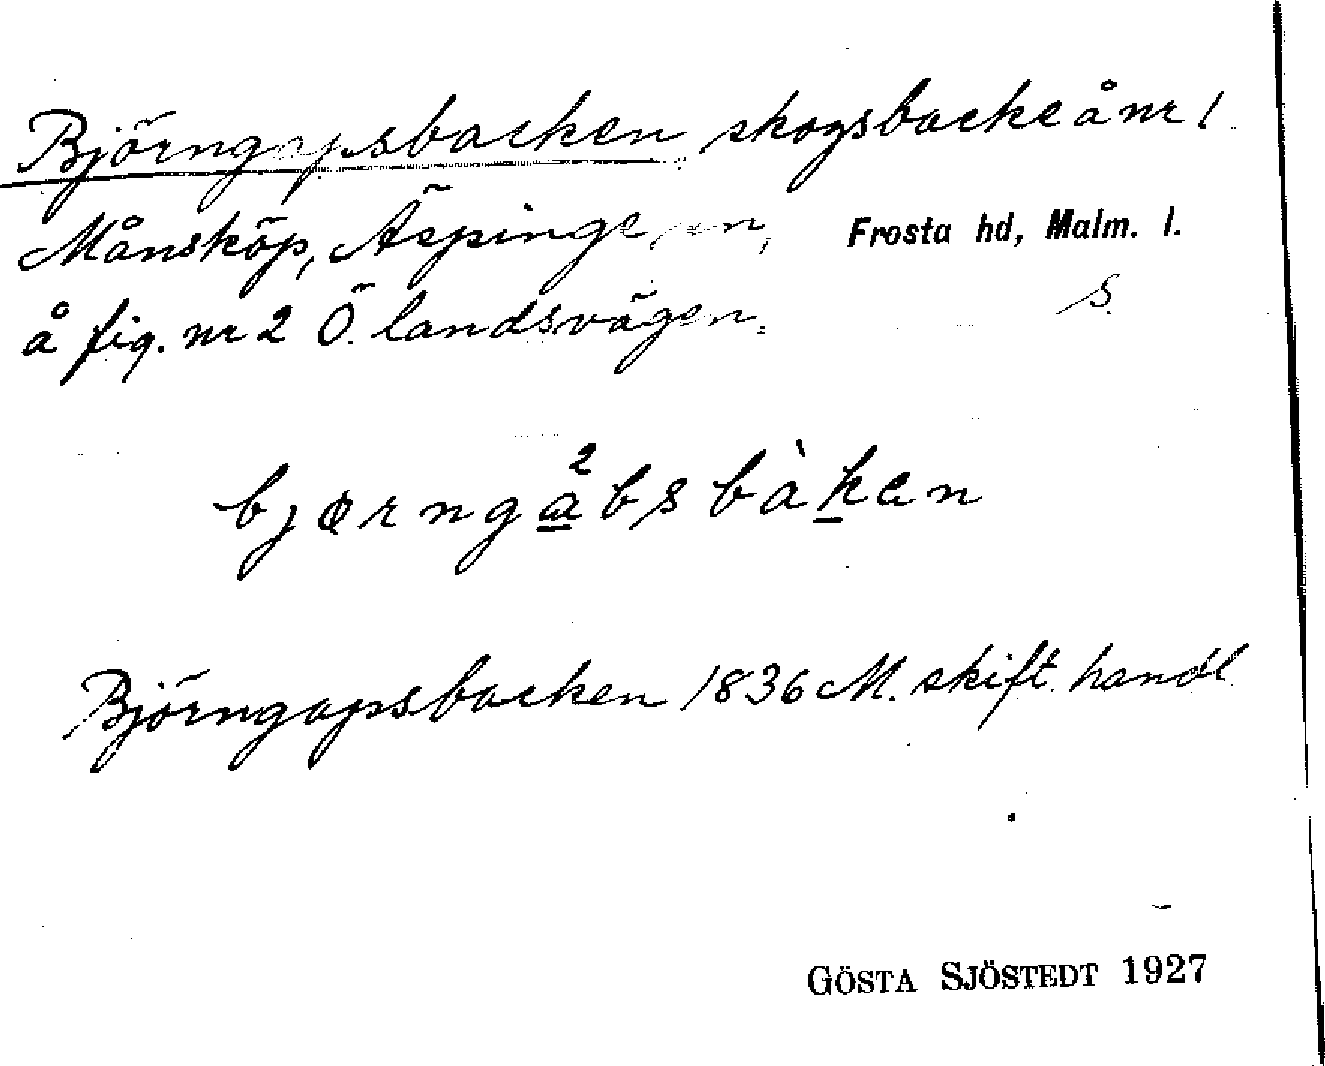 Björngapsbacken skogsbacke å nr 1
Månsköp, Äspinge sn, Frosta hd, Malm. l.
å fig. nr 2 Ö. landsvägen. S.
bjørnga²bsbàken
Björngapsbacken 1836 M. skift. handl
GÖSTA SJÖSTEDT 1927